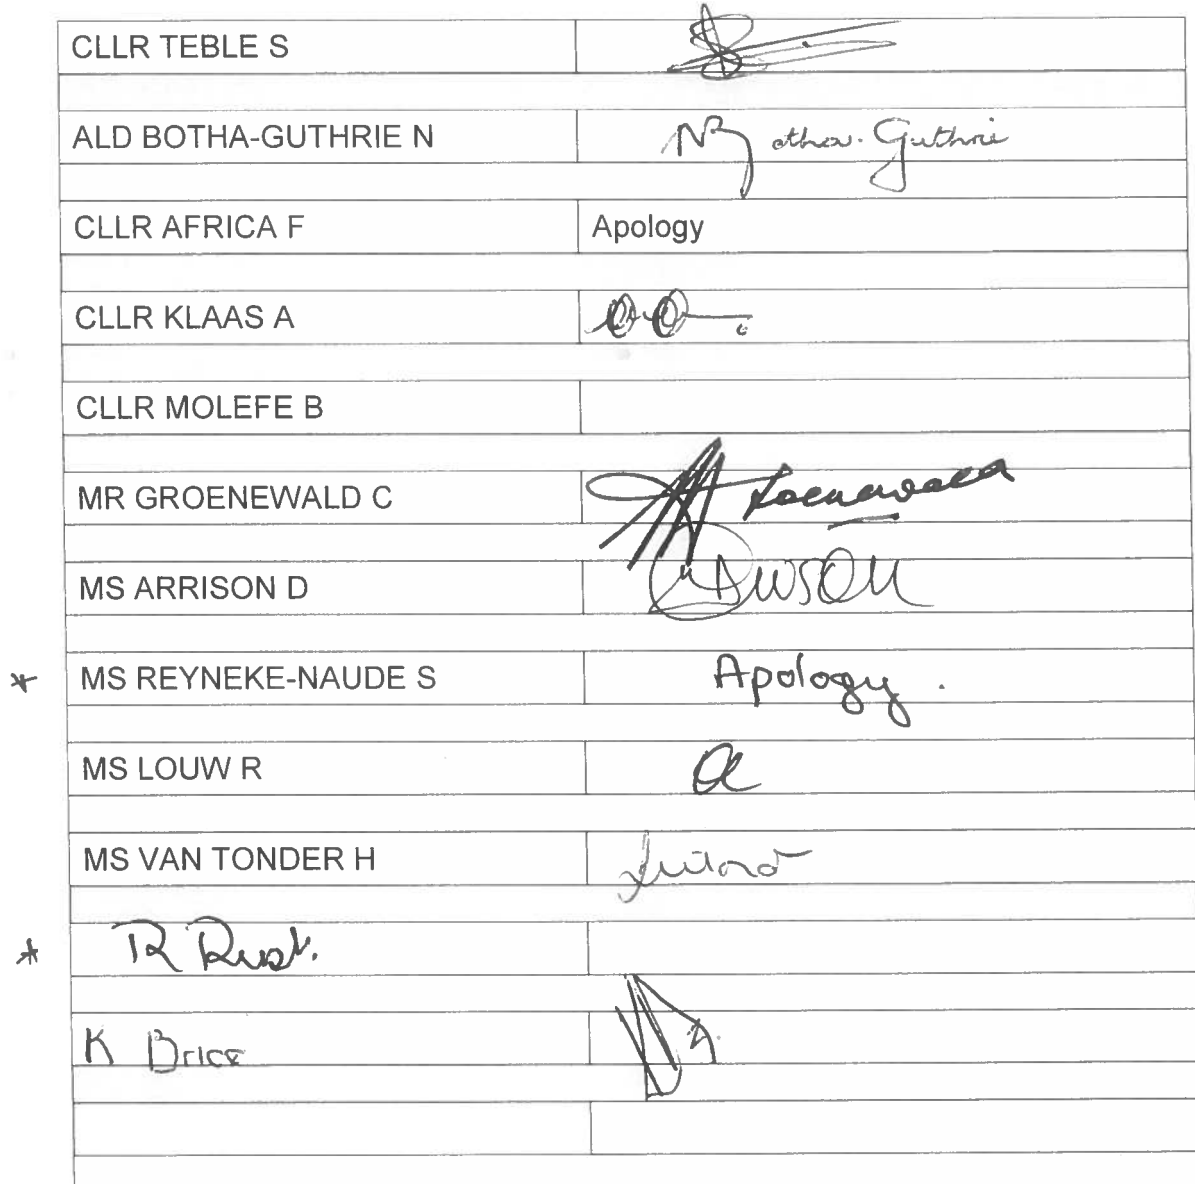 CLLR TEBLE S
ALD BOTHA-GUTHRIE N NBotha-Guthrie
CLLR AFRICA F Apology
CLLR KLAAS A
CLLR MOLEFE B
MR GROENEWALD C Groenewald
MS ARRISON D
* MS REYNEKE-NAUDE S Apology.
MS LOUW R
MS VAN TONDER H
* R Rust.
K Brice